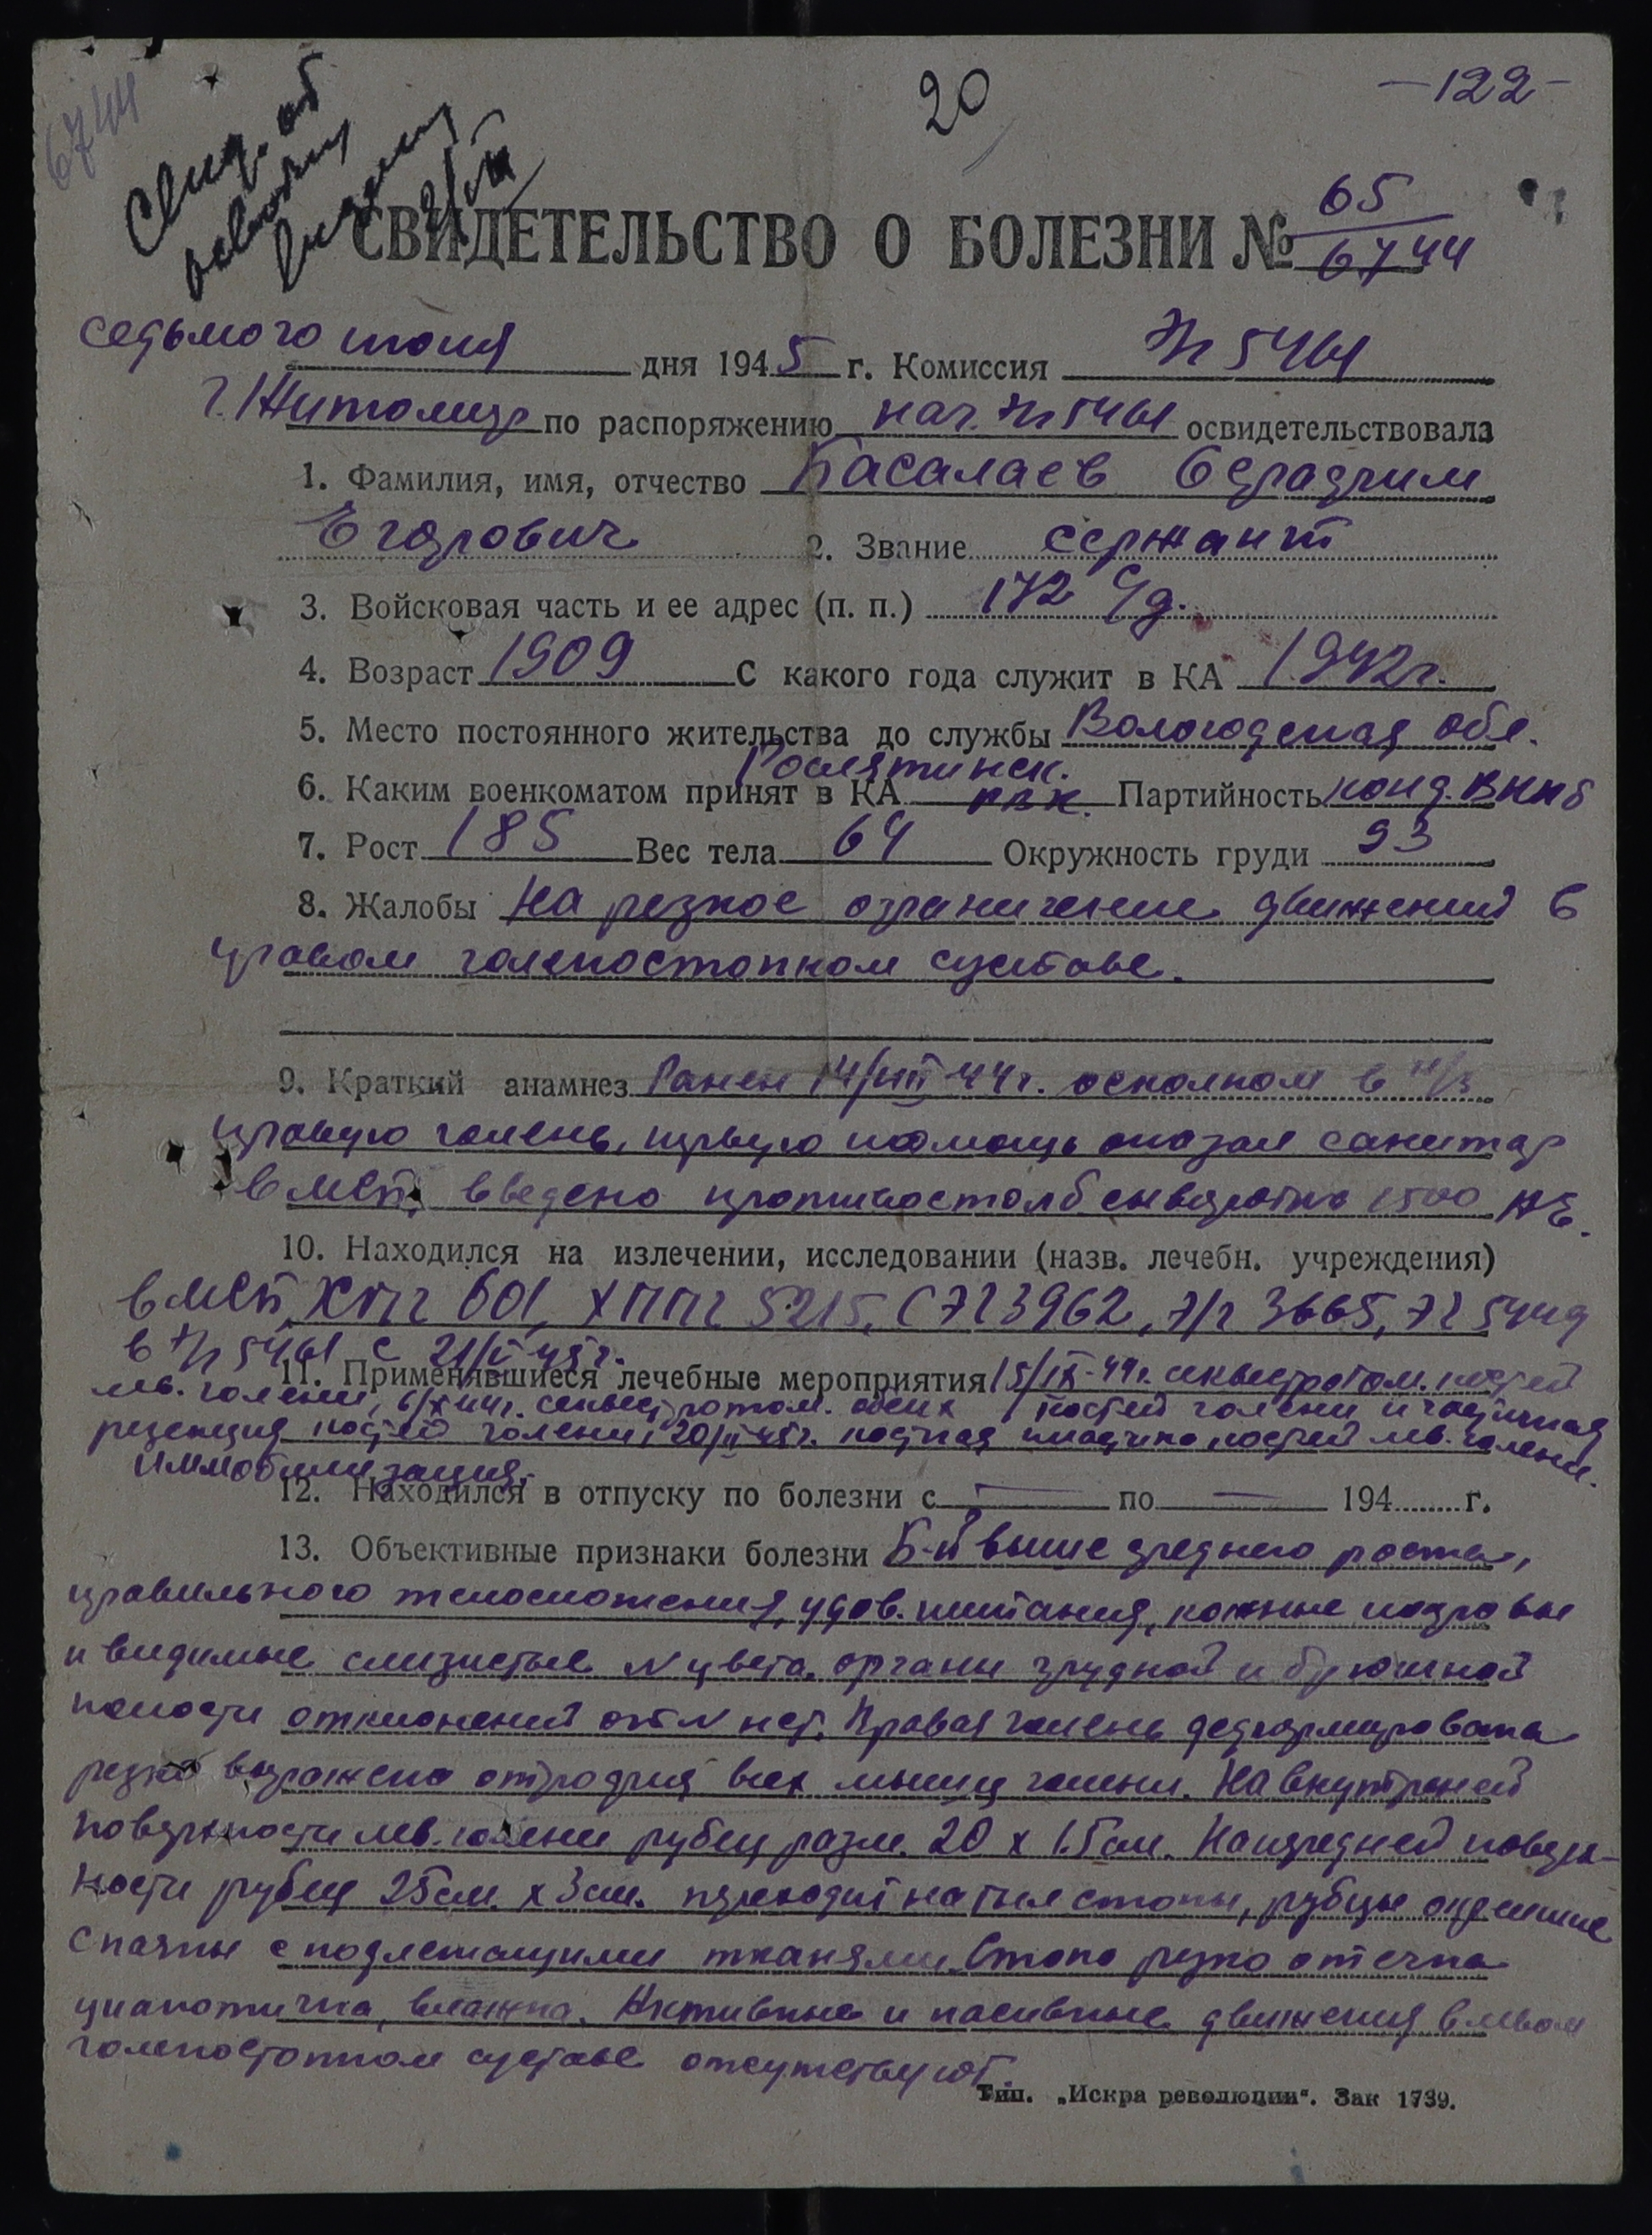 6744
20
-122-
Свид. об
СВИДЕТЕЛЬСТВО О БОЛЕЗНИ № 65/6744
седьмого июня дня 1945 г. Комиссия Э/г 5461
г. Житомир по распоряжению нач. Э/г 5461 освидетельствовала
1. Фамилия, имя, отчество Басалаев
Егорович 2. Звание сержант
3. Войсковая часть и ее адрес (п. п.) 172 Сд.
4. Возраст 1909 С какого года служит в КА 1942г.
5. Место постоянного жительства до службы Вологодская обл.
6. Каким военкоматом принят в КА Рослятинск. рвк. Партийность канд. ВКПб
7. Рост 185 Вес тела 64 Окружность груди 93
8. Жалобы На резкое ограничение движений в
правом голеностопном суставе.
9. Краткий анамнез Ранен 14/VIII-44г. осколком в н/з
правую голень, первую помощь оказал санитар
в МСП, введено противостолб. сыворотка 1500 АЕ.
10. Находился на излечении, исследовании (назв. лечебн. учреждения)
в МСП, ХППГ 601, ХППГ 5215, СЭГ 3962, Э/г 3665, ЭГ
в Э/г 5461 с 21/V 45г.
11. Применявшиеся лечебные мероприятия 15/IX-44г. секвестротом. костей
лев. голени, 6/X 44г. секвестротом. обеих костей голени и частичная
резекция костей голени, 20/II 45г. костная пластика костей лев. голени.
иммобилизация.
12. Находился в отпуску по болезни с — по — 194 г.
13. Объективные признаки болезни Б-й выше среднего роста,
правильного телосложения, удов. питания, кожные покровы
и видимые слизистые N цвета. органы грудной и брюшной
полости отклонений от N нет. Правая голень деформирована
резко выражена атрофия всех мышц голени. На внутреней
поверхности лев. голени рубец разм. 20 х 1.5 см. На передней поверх-
ности рубец 25 см. х 3 см. переходит на тыл стопы, рубцы
спаяны с подлежащими тканями. Стопа резко отечна
цианотична, влажна. Активные и пасивные движения в левом
голеностопном суставе отсутствуют.
Тип. „Искра революции“. Зак 1739.